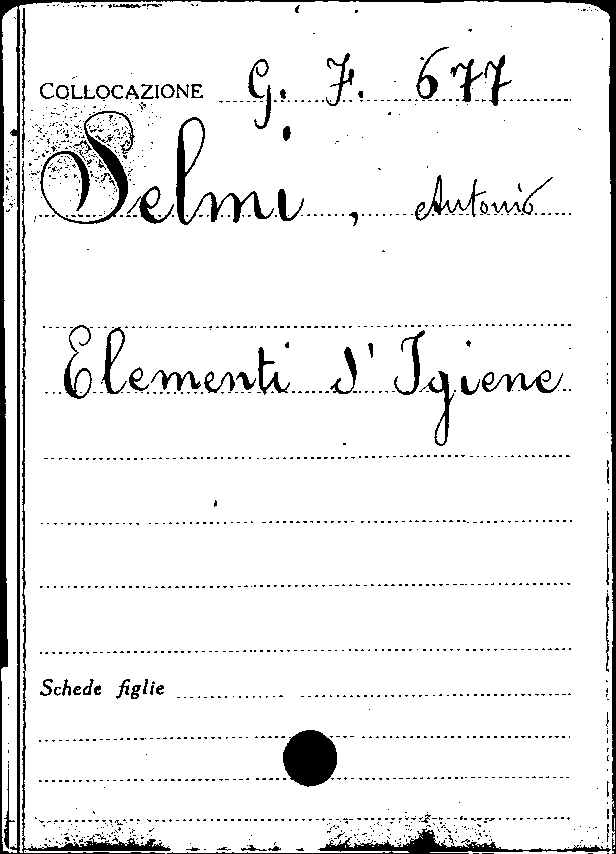 COLLOCAZIONE G. F. 677
Selmi, Antonio
Elementi d'Igiene
Schede figlie